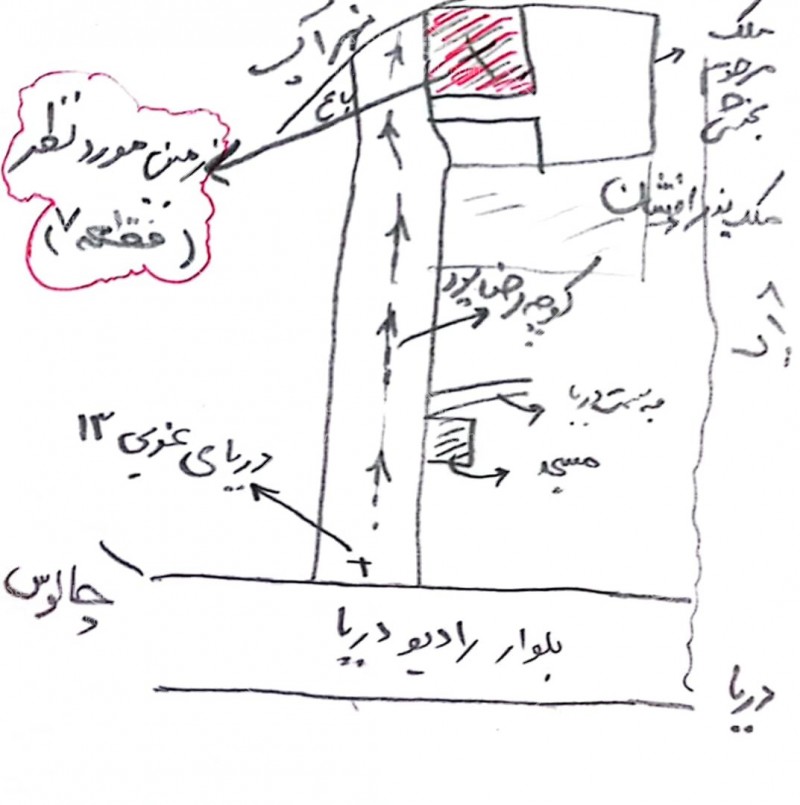 نهر آب
ملک
مرحوم
بخشی
باغ
زمین مورد نظر
(قطعه ۷)
ملک بذرافشان
کوچه رضی پور
به سمت دریا
مسجد
دریای غربی ۱۳
چالوس
بلوار رادیو دریا
دریا